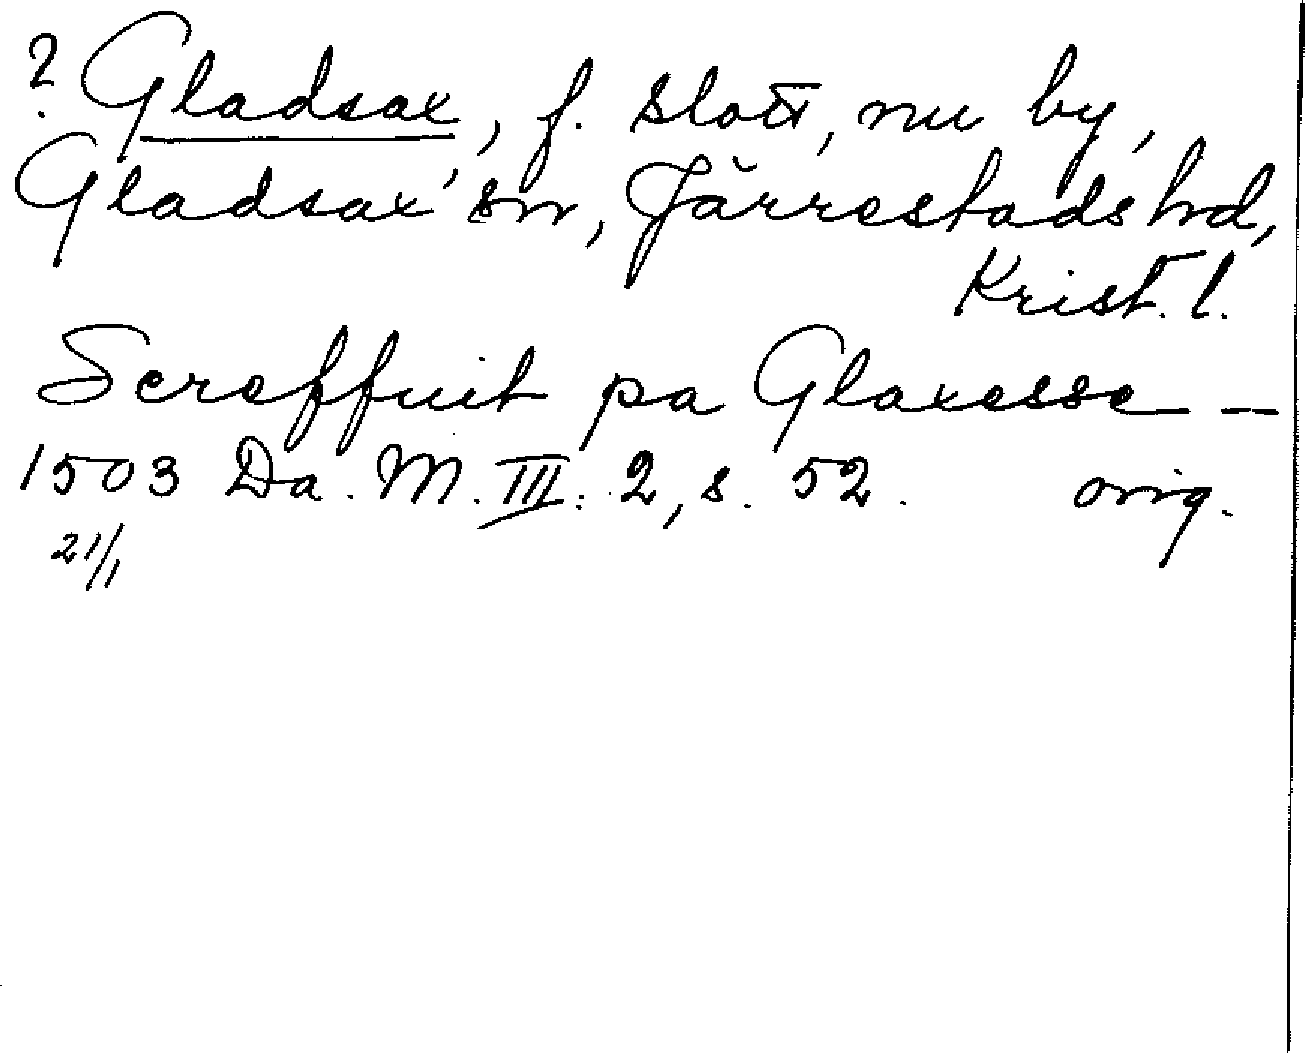 ? Gladsax, f. slott, nu by,
Gladsax sn, Järrestads hd,
Krist. l.
Screffuit pa Glaxesse —
1503 Da. M. III: 2, s. 52. orig.
21/1